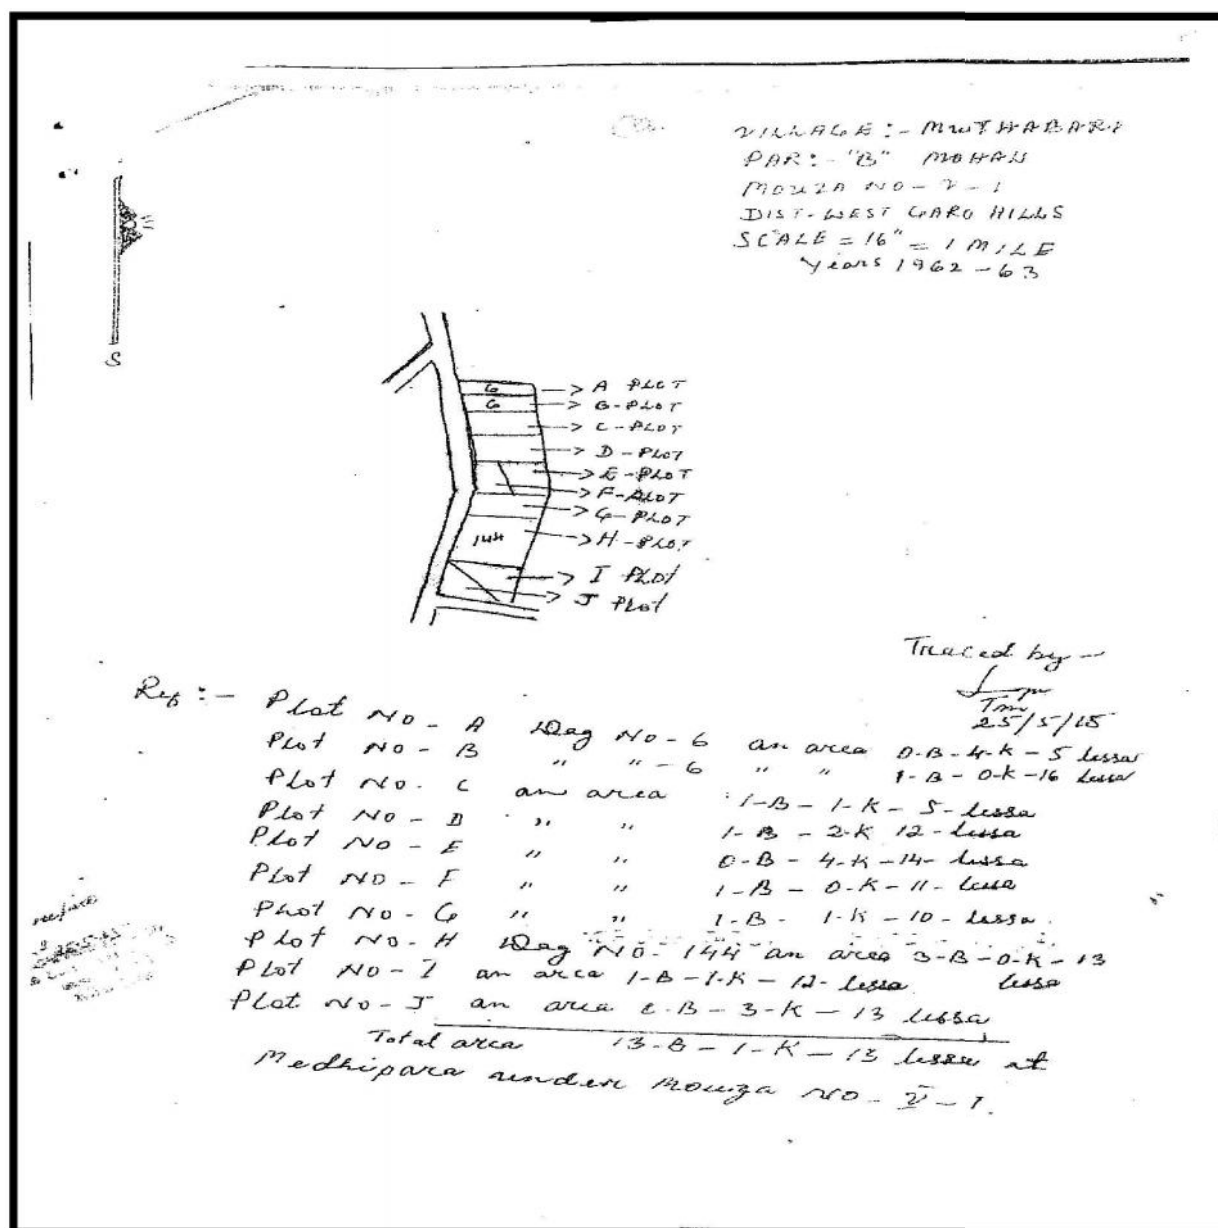 VILLAGE :- MUTHABARI
PAR :- "B" MOHAN
MOUZA NO - V - 1
DIST - WEST GARO HILLS
SCALE = 16" = 1 MILE
Years 1962 - 63
S
6 → A PLOT
6 → B - PLOT
→ C - PLOT
→ D - PLOT
→ E - PLOT
→ F - PLOT
→ G - PLOT
144 → H - PLOT
→ I PLOT
→ J PLOT
Traced by -
25/5/15
Ref :- Plot NO - A Dag NO - 6 an area 0-B-4-K-5 lessa
Plot NO - B " " - 6 " " 1-B-0-K-16 lessa
Plot NO - C an area 1-B-1-K-5-lessa
Plot NO - D " " 1-B-2-K 12-lessa
Plot NO - E " " 0-B-4-K-14-lessa
Plot NO - F " " 1-B-0-K-11-lessa
Plot NO - G " " 1-B-1-K-10-lessa
Plot NO - H Dag NO - 144 an area 3-B-0-K-13 lessa
Plot NO - I an area 1-B-1-K-12-lessa
Plot NO - J an area B-3-K-13 lessa
Total area 13-B-1-K-13 lessa at
Medhipara under Mouza NO - V - 1.